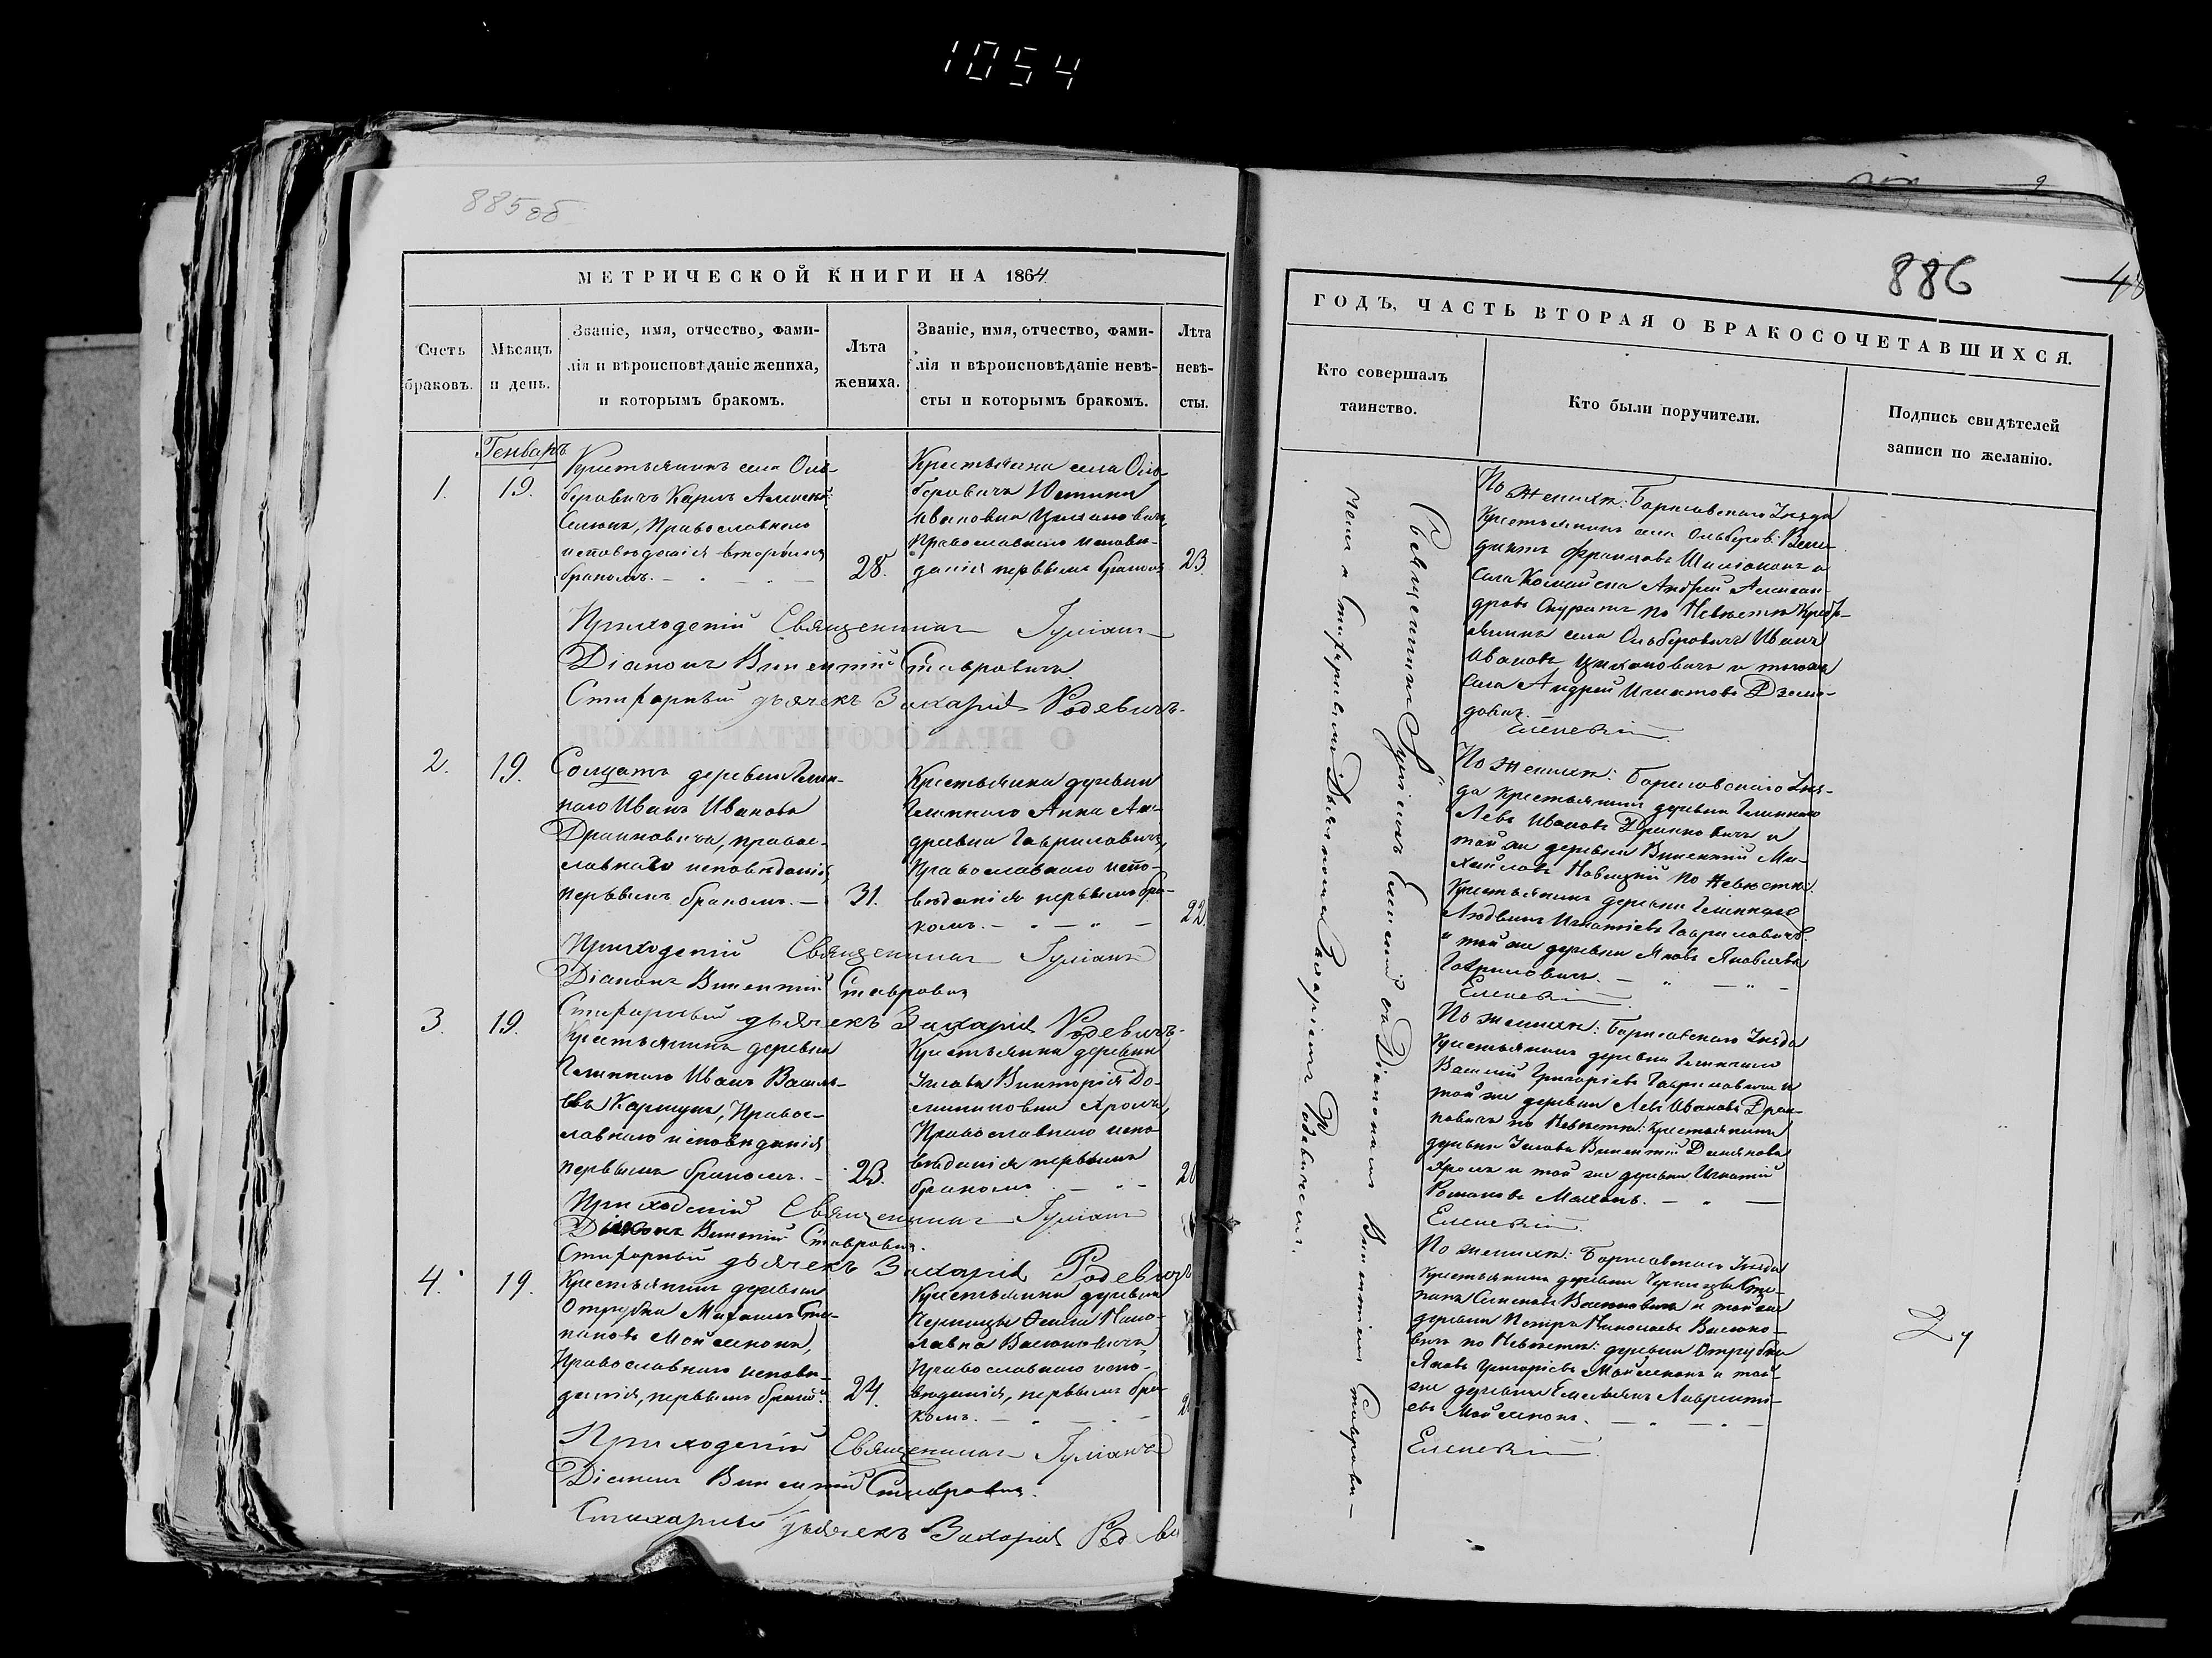 1054
885об
МЕТРИЧЕСКОЙ КНИГИ НА 1864
Счетъ браковъ.
Мѣсяцъ и день.
Званіе, имя, отчество, фами-
лія и вѣроисповѣданіе жениха,
и которымъ бракомъ.
Лѣта
жениха.
Званіе, имя, отчество, фами-
лія и вѣроисповѣданіе невѣ-
сты и которымъ бракомъ.
Лѣта
невѣ-
сты.
Генварь
1.
19.
Крестьянинъ села Оль-
беровичъ Карлъ Алексѣй
православнаго
исповѣданія вторымъ
бракомъ.
28.
Крестьянка села Оль-
беровичъ Юстина
Ивановна Цихановичъ,
православнаго исповѣ-
данія первымъ бракомъ
23.
Приходскій Священникъ Гуліанъ
Діаконъ Викентій Ставровичъ
Стихарный дьячекъ Захарія Родевичъ.
2.
19.
Солдатъ деревни Глин-
наго Иванъ Ивановъ
Дранковичъ, правос-
лавнаго исповѣданія,
первымъ бракомъ.
31.
Крестьянка деревни
Глиннаго Анна Ан-
дреевна Гавриловичъ,
православнаго испо-
вѣданія первымъ бра-
комъ.
22.
Приходскій Священникъ Гуліанъ
Діаконъ Викентій Ставровичъ
Стихарный дьячекъ Захарія Родевичъ.
3.
19.
Крестьянинъ деревни
Глиннаго Иванъ Василь-
евъ Карпукъ, Правос-
лавнаго исповѣданія
первымъ бракомъ.
23.
Крестьянка деревни
Викторія До-
миниковна Хромъ,
Православнаго испо-
вѣданія первымъ
бракомъ
20
Приходскій Священникъ Гуліанъ
Діаконъ Викентій Ставровичъ.
Стихарный дьячекъ Захарія Родевичъ
4.
19.
Крестьянинъ деревни
Отрубка Михаилъ Сте-
пановъ Мойсенокъ,
Православнаго исповѣ-
данія, первымъ бракомъ
24.
Крестьянка деревни
Черницы Нико-
лаевна Васюковичъ,
Православнаго испо-
вѣданія, первымъ бра-
комъ.
Приходскій Священникъ Гуліанъ
Діаконъ Викентій Ставровичъ.
Стихарный дьячекъ Захарія
886
ГОДЪ, ЧАСТЬ ВТОРАЯ О БРАКОСОЧЕТАВШИХСЯ.
Кто совершалъ
таинство.
Кто были поручители.
Подпись свидѣтелей
записи по желанію.
Священникъ Гуліанъ Еленскій съ Діакономъ Викентіемъ Ставрови-
чемъ и Стихарнымъ Дьячкомъ Захаріемъ Родевичемъ.
По женихѣ: Борисовскаго Уѣзда
Крестьянинъ села Ольберов. Вене-
диктъ Францовъ и
села Андрей Алексан-
дровъ Скуратъ по Невѣстѣ Кресть-
янинъ села Ольберовичъ Иванъ
Ивановъ Цихановичъ и тогоже
села Андрей Игнатовъ

Еленскій
По женихѣ: Борисовскаго Уѣз-
да крестьянинъ деревни Глиннаго
Левъ Ивановъ Дранковичъ и
той же деревни Викентій Ми-
хайловъ Новицкій по Невѣстѣ
Крестьянинъ деревни Глиннаго
Людвикъ Игнатіевъ Гавриловичъ
и той же деревни Яковъ Яковлевъ
Гавриловичъ.
Еленскій
По женихѣ: Борисовскаго Уѣзда
Крестьянинъ деревни Глиннаго
Василій Григоріевъ Гавриловичъ и
той же деревни Левъ Ивановъ Дран-
ковичъ по Невѣстѣ: крестьянинъ
деревни Викентій Демяновъ
Хромъ и той же деревни Игнатій
Романовъ Маханъ.
Еленскій
По женихѣ: Борисовскаго Уѣзда
Крестьянинъ деревни Черницы Сте-
панъ Семеновъ Васюковичъ и той же
деревни Петръ Николаевъ Васюко-
вичъ по Невѣстѣ: деревни Отрубка
Яковъ Григоріевъ Мойсенокъ и той
же деревни Емельянъ Лавренті-
евъ Мойсенокъ.
Еленскій